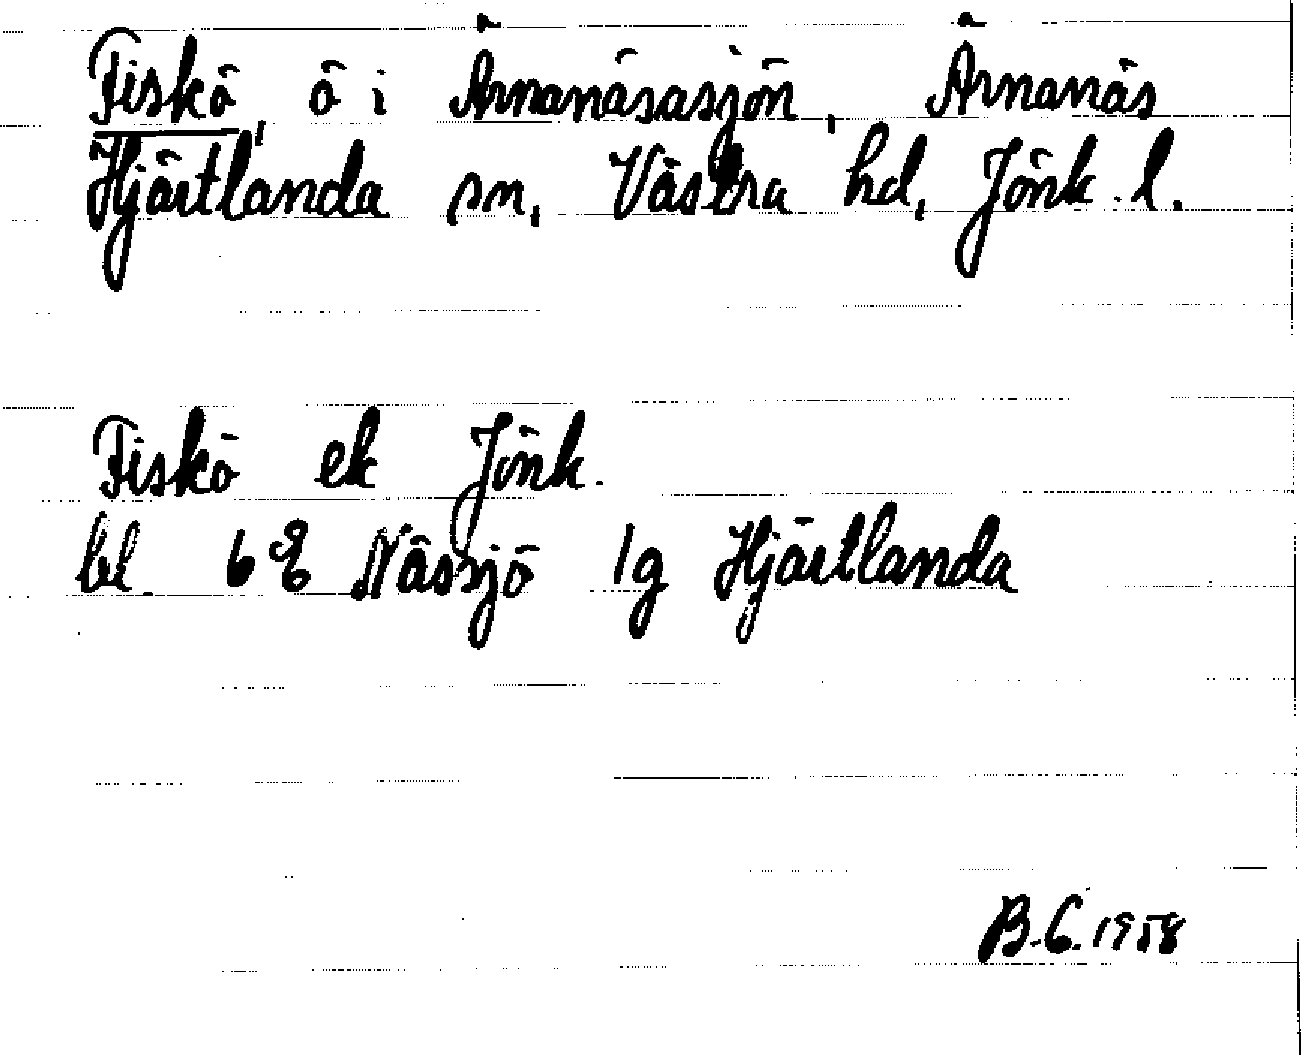 Fiskö, ö i Ärnanäsasjön, Ärnanäs
Hjärtlanda sn, Västra hd, Jönk. l.
Fiskö ek Jönk.
bl. 6E Nässjö 1g Hjärtlanda
B.C. 1958